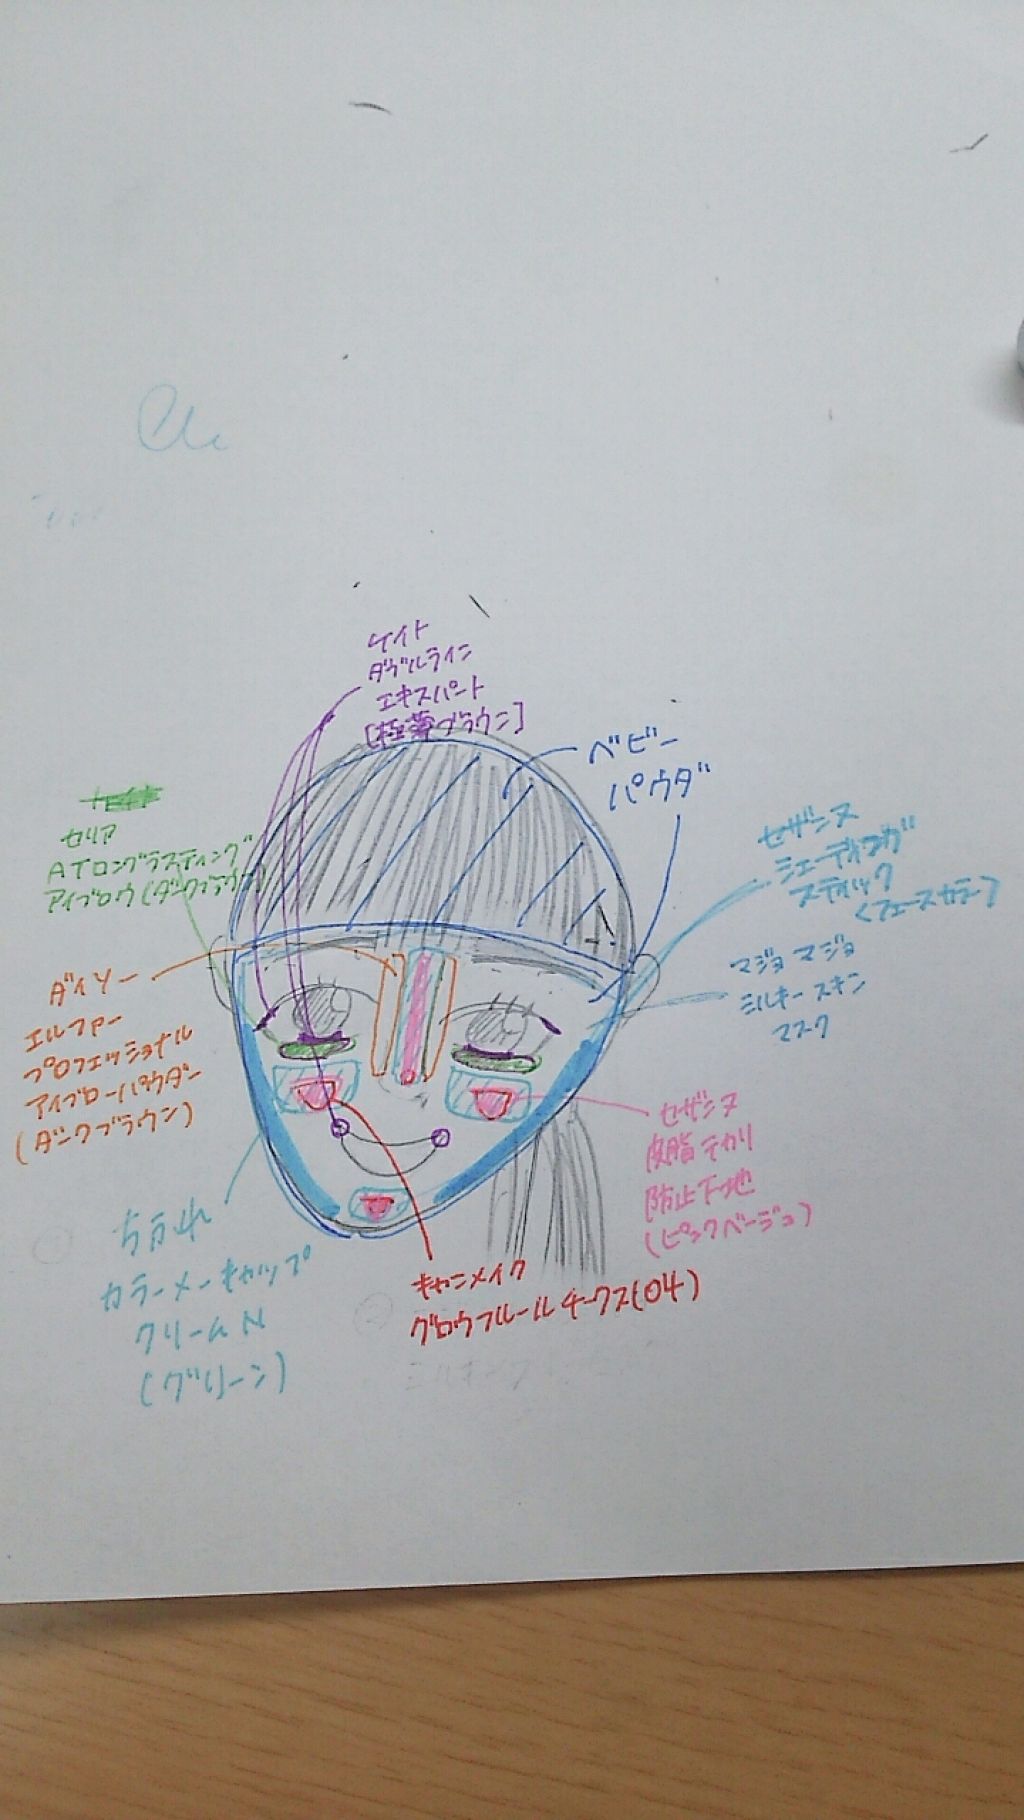 ケイト
ダブルライン
エキスパート
[極薄ブラウン]
ベビー
パウダ
セリア
ATロングラスティング
アイブロウ(ダークブラウン)
セザンヌ
シェーディング
スティック
(フェースカラー)
マジョマジョ
ミルキースキン
マスク
ダイソー
エルファー
プロフェッショナル
アイブローパウダー
(ダークブラウン)
セザンヌ
皮脂テカリ
防止下地
(ピンクベージュ)
ちふれ
カラーメーキャップ
クリームN
(グリーン)
キャンメイク
グロウフルールチークス(04)